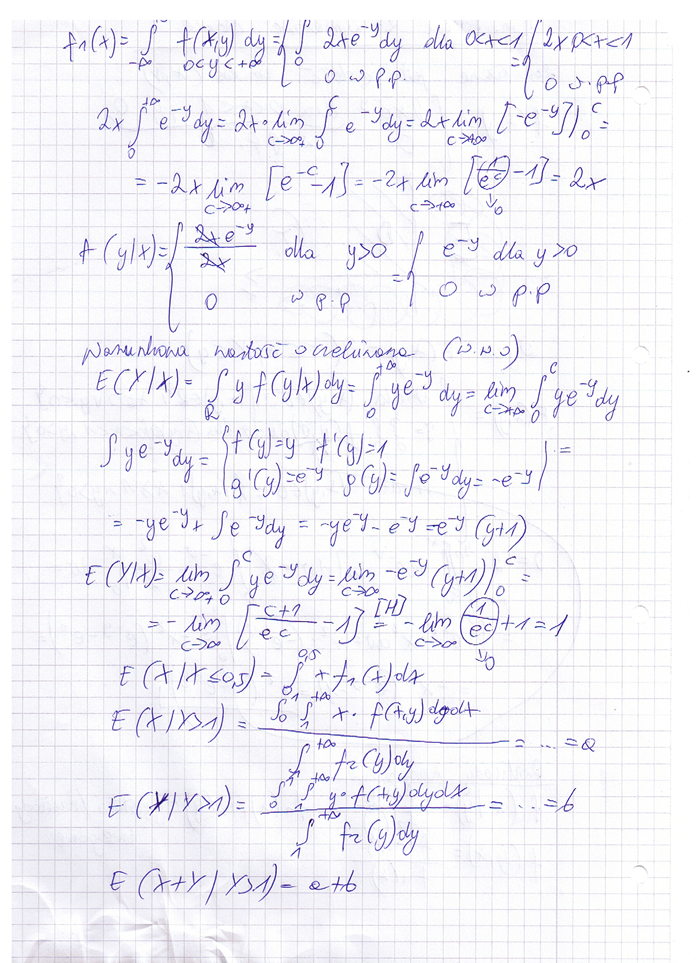 f₁(x) = ∫_{-∞} f(x,y) dy = { ∫₀ 2xe^{-y} dy dla 0<x<1 = { 2x 0<x<1
0<y<+∞ 0 w p.p. 0 w p.p
2x ∫₀^{+∞} e^{-y} dy = 2x · lim_{c→∞+} ∫₀^c e^{-y} dy = 2x lim_{c→+∞} [-e^{-y}] |₀^c =
= -2x lim_{c→∞+} [e^{-c} - 1] = -2x lim_{c→+∞} [1/e^c - 1] = 2x
↓0
f(y|x) = { 2xe^{-y}/2x dla y>0 = { e^{-y} dla y>0
0 w p.p 0 w p.p
Warunkowa wartość oczekiwana (w.w.o)
E(Y|X) = ∫_R y f(y|x) dy = ∫₀^{+∞} ye^{-y} dy = lim_{c→+∞} ∫₀^c ye^{-y} dy
∫ ye^{-y} dy = { f(y)=y f'(y)=1 | =
g'(y)=e^{-y} g(y)= ∫e^{-y} dy = -e^{-y}
= -ye^{-y} + ∫e^{-y} dy = -ye^{-y} - e^{-y} = -e^{-y} (y+1)
E(Y|X) = lim_{c→∞+} ∫₀^c ye^{-y} dy = lim_{c→∞} -e^{-y} (y+1) |₀^c =
= -lim_{c→∞} [c+1/e^c - 1] =^{[H]} -lim_{c→∞} 1/e^c + 1 = 1
↓0
E(X|X≤0,5) = ∫₀^{0,5} x f₁(x) dx
E(X|Y>1) = ∫₀^1 ∫₁^{+∞} x · f(x,y) dydx / ∫₁^{+∞} f₂(y) dy = ... = a
E(Y|Y>1) = ∫₀^1 ∫₁^{+∞} y · f(x,y) dydx / ∫₁^{+∞} f₂(y) dy = ... = b
E(X+Y|Y>1) = a+b